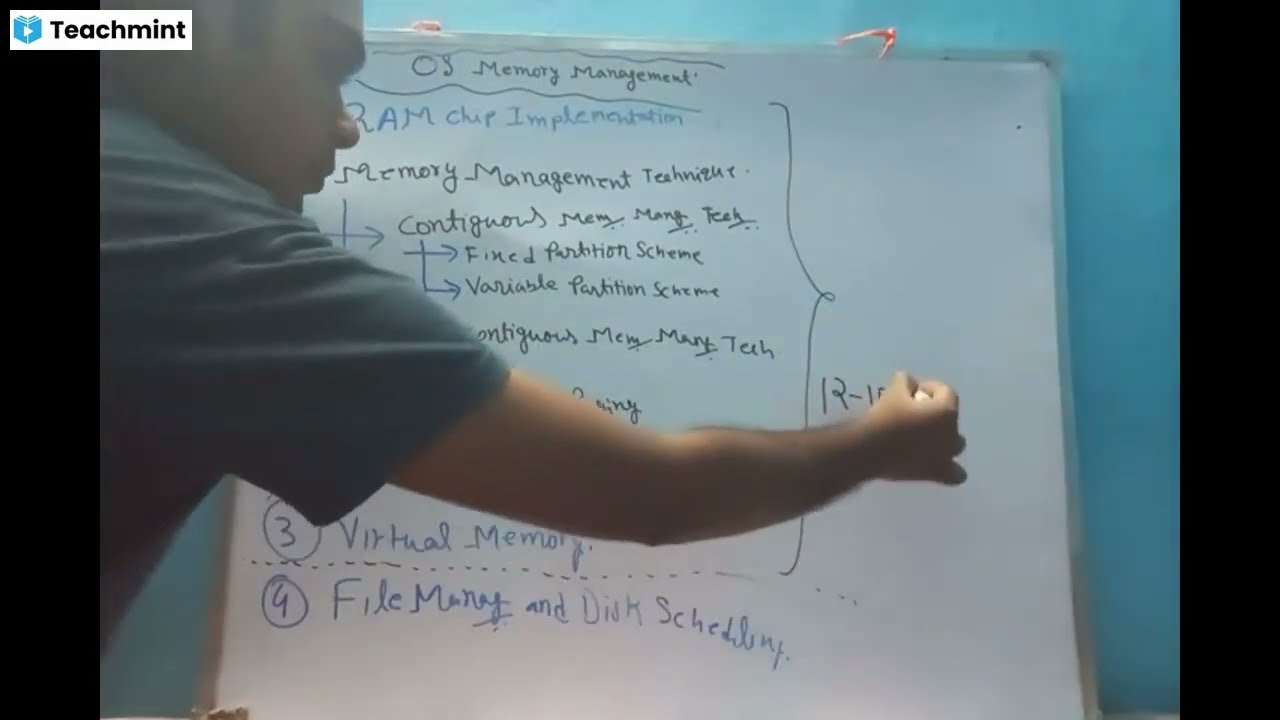 Teachmint
OS Memory Management.
RAM chip Implementation
Memory Management Technique.
Contiguous Mem. Mang. Tech.
Fixed Partition Scheme
Variable Partition Scheme
ontiguous Mem Mang Tech
12-1
③ Virtual Memory.
④ File Manag and Disk Schedling.